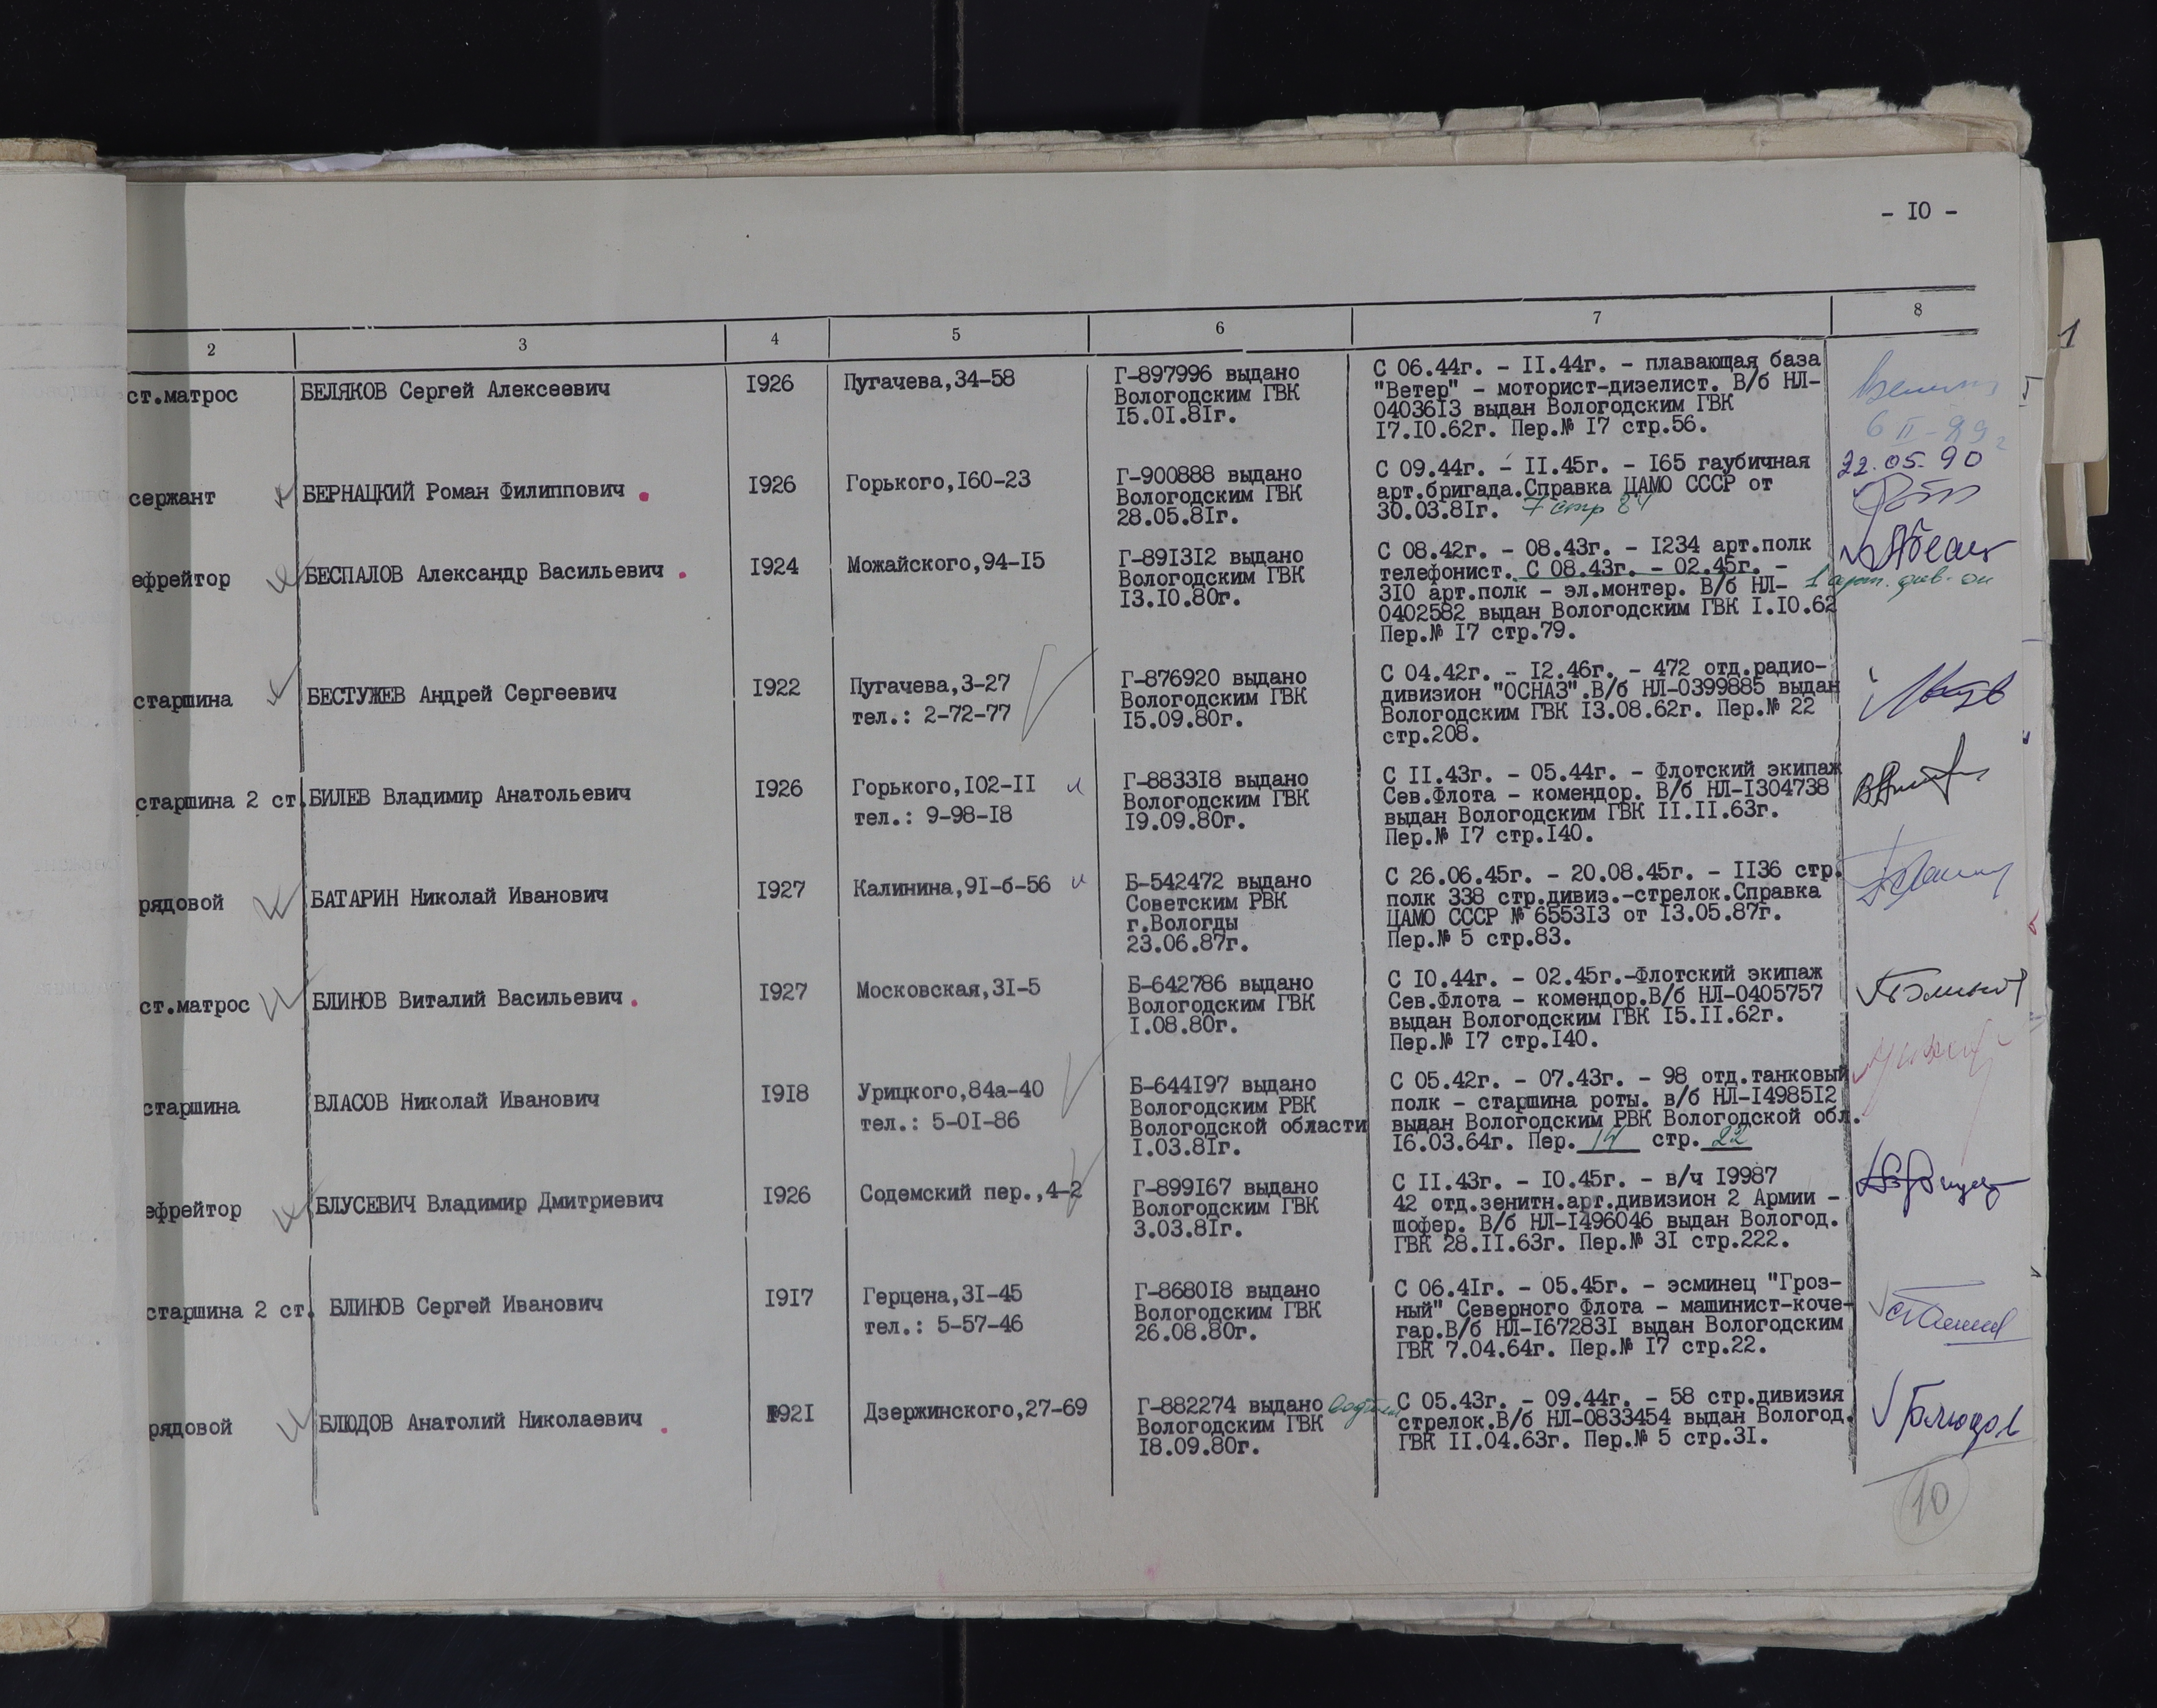 - I0 -
2 3 4 5 6 7 8
ст.матрос БЕЛЯКОВ Сергей Алексеевич I926 Пугачева,34-58 Г-897996 выдано С 06.44г. - II.44г. - плавающая база
Вологодским ГВК "Ветер" - моторист-дизелист. В/б НЛ-
I5.0I.8Iг. 04036I3 выдан Вологодским ГВК
I7.I0.62г. Пер.№ I7 стр.56.
6 II-89г
сержант БЕРНАЦКИЙ Роман Филиппович I926 Горького,I60-23 Г-900888 выдано С 09.44г. - II.45г. - I65 гаубичная 22.05.90
Вологодским ГВК арт.бригада.Справка ЦАМО СССР от
28.05.8Iг. 30.03.8Iг. 7 стр 84
ефрейтор БЕСПАЛОВ Александр Васильевич I924 Можайского,94-I5 Г-89I3I2 выдано С 08.42г. - 08.43г. - I234 арт.полк
Вологодским ГВК телефонист. С 08.43г. - 02.45г. -
I3.I0.80г. 3I0 арт.полк - эл.монтер. В/б НЛ-
0402582 выдан Вологодским ГВК I.I0.62
Пер.№ I7 стр.79.
старшина БЕСТУЖЕВ Андрей Сергеевич I922 Пугачева,3-27 Г-876920 выдано С 04.42г. - I2.46г. - 472 отд.радио-
тел.: 2-72-77 Вологодским ГВК дивизион "ОСНАЗ".В/б НЛ-0399885 выдан
I5.09.80г. Вологодским ГВК I3.08.62г. Пер.№ 22
стр.208.
старшина 2 ст. БИЛЕВ Владимир Анатольевич I926 Горького,I02-II Г-8833I8 выдано С II.43г. - 05.44г. - Флотский экипаж
тел.: 9-98-I8 Вологодским ГВК Сев.Флота - комендор. В/б НЛ-I304738
I9.09.80г. выдан Вологодским ГВК II.II.63г.
Пер.№ I7 стр.I40.
рядовой БАТАРИН Николай Иванович I927 Калинина,9I-б-56 Б-542472 выдано С 26.06.45г. - 20.08.45г. - II36 стр.
Советским РВК полк 338 стр.дивиз.-стрелок.Справка
г.Вологды ЦАМО СССР № 6553I3 от I3.05.87г.
23.06.87г. Пер.№ 5 стр.83.
ст.матрос БЛИНОВ Виталий Васильевич I927 Московская,3I-5 Б-642786 выдано С I0.44г. - 02.45г.-Флотский экипаж
Вологодским ГВК Сев.Флота - комендор.В/б НЛ-0405757
I.08.80г. выдан Вологодским ГВК I5.II.62г.
Пер.№ I7 стр.I40.
старшина ВЛАСОВ Николай Иванович I9I8 Урицкого,84а-40 Б-644I97 выдано С 05.42г. - 07.43г. - 98 отд.танковый
тел.: 5-0I-86 Вологодским РВК полк - старшина роты. в/б НЛ-I4985I2
Вологодской области выдан Вологодским РВК Вологодской обл.
I.03.8Iг. I6.03.64г. Пер. 14 стр. 22
ефрейтор БЛУСЕВИЧ Владимир Дмитриевич I926 Содемский пер.,4-2 Г-899I67 выдано С II.43г. - I0.45г. - в/ч I9987
Вологодским ГВК 42 отд.зенитн.арт.дивизион 2 Армии -
3.03.8Iг. шофер. В/б НЛ-I496046 выдан Вологод.
ГВК 28.II.63г. Пер.№ 3I стр.222.
старшина 2 ст. БЛИНОВ Сергей Иванович I9I7 Герцена,3I-45 Г-8680I8 выдано С 06.4Iг. - 05.45г. - эсминец "Гроз-
тел.: 5-57-46 Вологодским ГВК ный" Северного Флота - машинист-коче-
26.08.80г. гар.В/б НЛ-I67283I выдан Вологодским
ГВК 7.04.64г. Пер.№ I7 стр.22.
рядовой БЛЮДОВ Анатолий Николаевич I92I Дзержинского,27-69 Г-882274 выдано С 05.43г. - 09.44г. - 58 стр.дивизия
Вологодским ГВК стрелок.В/б НЛ-0833454 выдан Вологод. Блюдов
I8.09.80г. ГВК II.04.63г. Пер.№ 5 стр.3I.
10
1